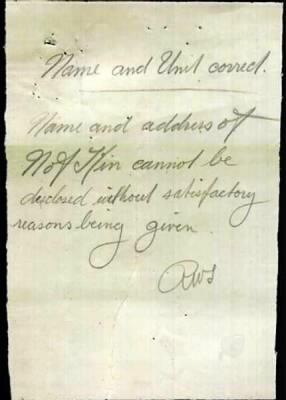 Name and Unit correct.
Name and address of
N of Kin cannot be
disclosed without satisfactory
reasons being given.
RWS